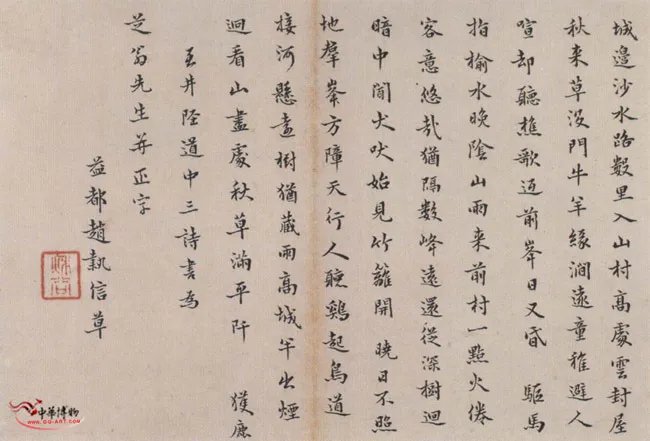 城邊沙水路數里入山村高處雲封屋
秋来草没門牛羊緣澗遠童稚避人
喧却聽樵歌近前峯日又昏 驅馬
指榆水晚陰山雨来前村一點火倦
客意悠哉猶隔數峰遠還從深樹迴
暗中聞犬吠始見竹籬開 曉日不照
地羣峯方障天行人聽鷄起鳥道
接河懸遠樹猶藏雨高城半出煙
迴看山盡處秋草滿平阡 獲鹿
至井陘道中三詩書為
芝翁先生并正字
益都趙執信草
中華博物
www.gg-art.com